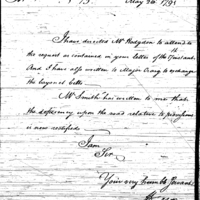 May 24. 1791
I have directed Mr Hodgdon to attend to
the request as contained in your letter of the 17 instant
And I have also written to Major Craig to exchange
the bayonet belts
Mr Smith has written to me that
the deficiency upon the road relative to provisions
is now rectified
I am
Sir,
Your very humble Servant